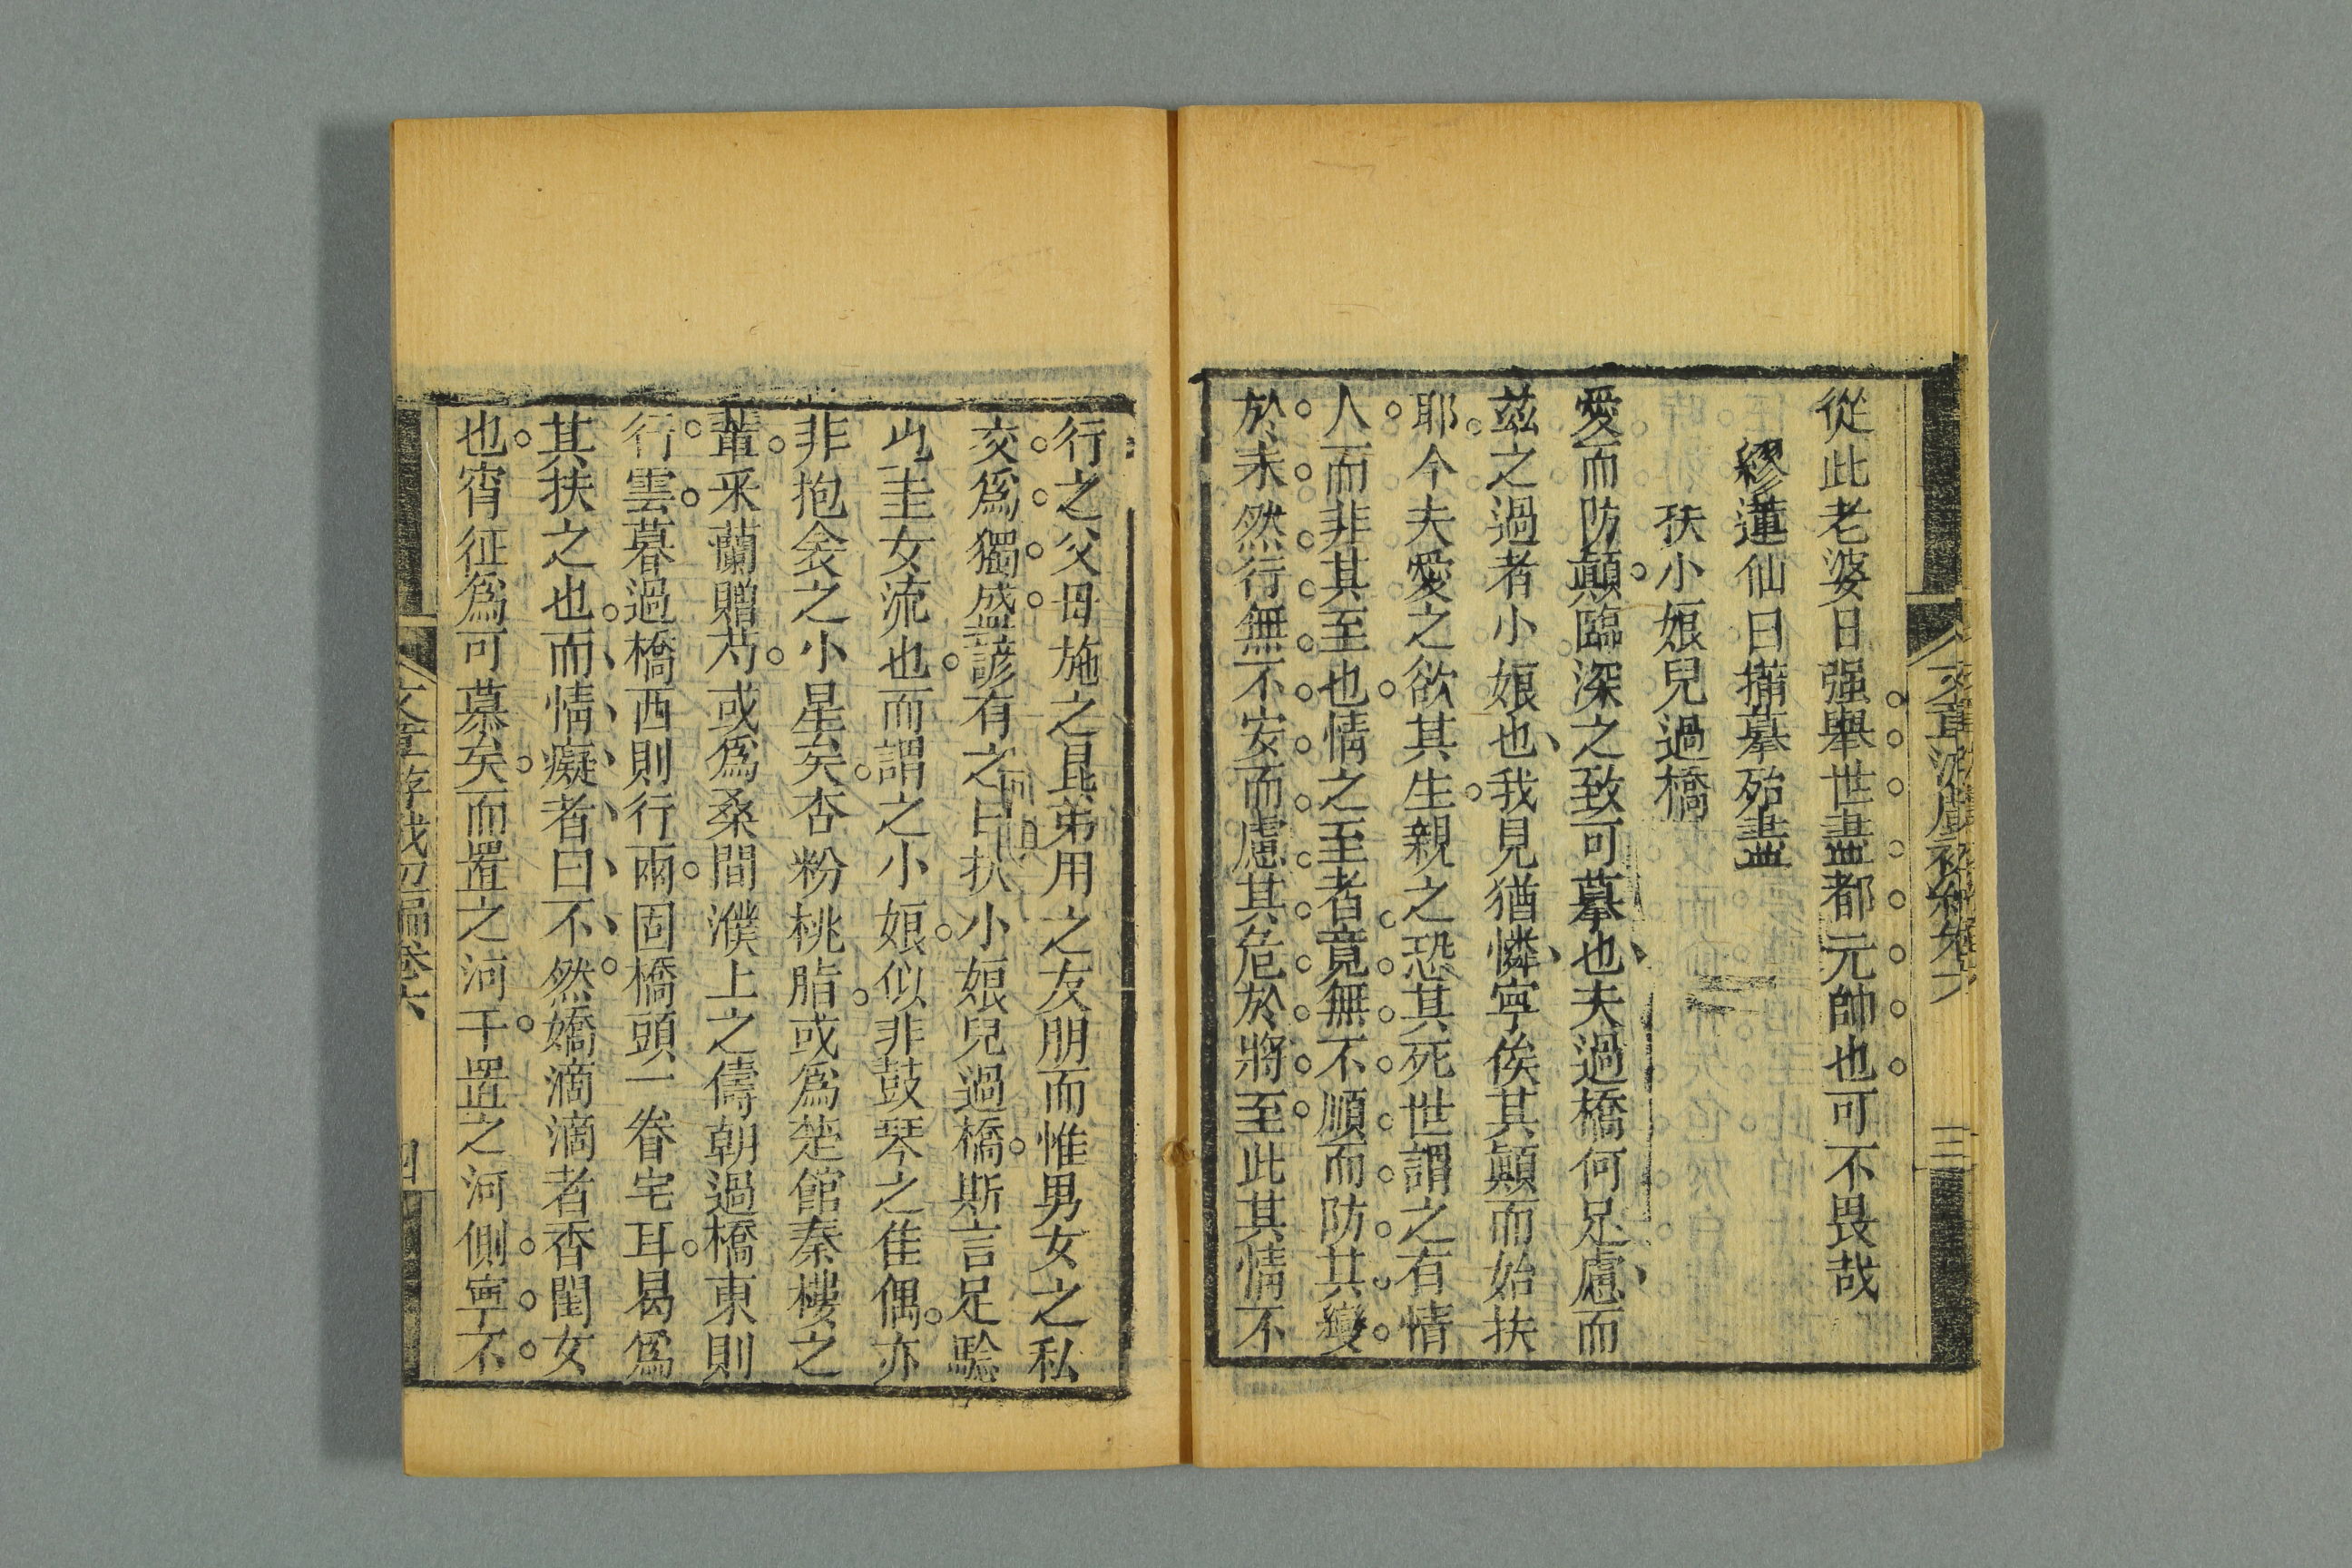 文章游戲初編卷六
三
從此老婆日强舉世盡都元帥也可不畏哉
繆蓮仙曰描摹殆盡
扶小娘兒過橋
愛而防顛臨深之致可摹也夫過橋何足慮而
茲之過者小娘也我見猶憐寧俟其顛而始扶
耶今夫愛之欲其生親之恐其死世謂之有情
人而非其至也情之至者竟無不順而防其變
於未然行無不安而慮其危於將至此其情不
行之父母施之昆弟用之友朋而惟男女之私
交爲獨盛諺有之曰扶小娘兒過橋斯言足驗
此圭女流也而謂之小娘似非鼓琴之佳偶亦
非抱衾之小星矣杏粉桃脂或爲楚館秦樓之
輩采蘭贈芍或爲桑間濮上之儔朝過橋東則
行雲暮過橋西則行雨固橋頭一眷宅耳曷爲
其扶之也而情癡者曰不然嬌滴滴者香閨女
也宵征爲可慕矣而置之河干置之河側寧不
文章游戲初編卷六
四